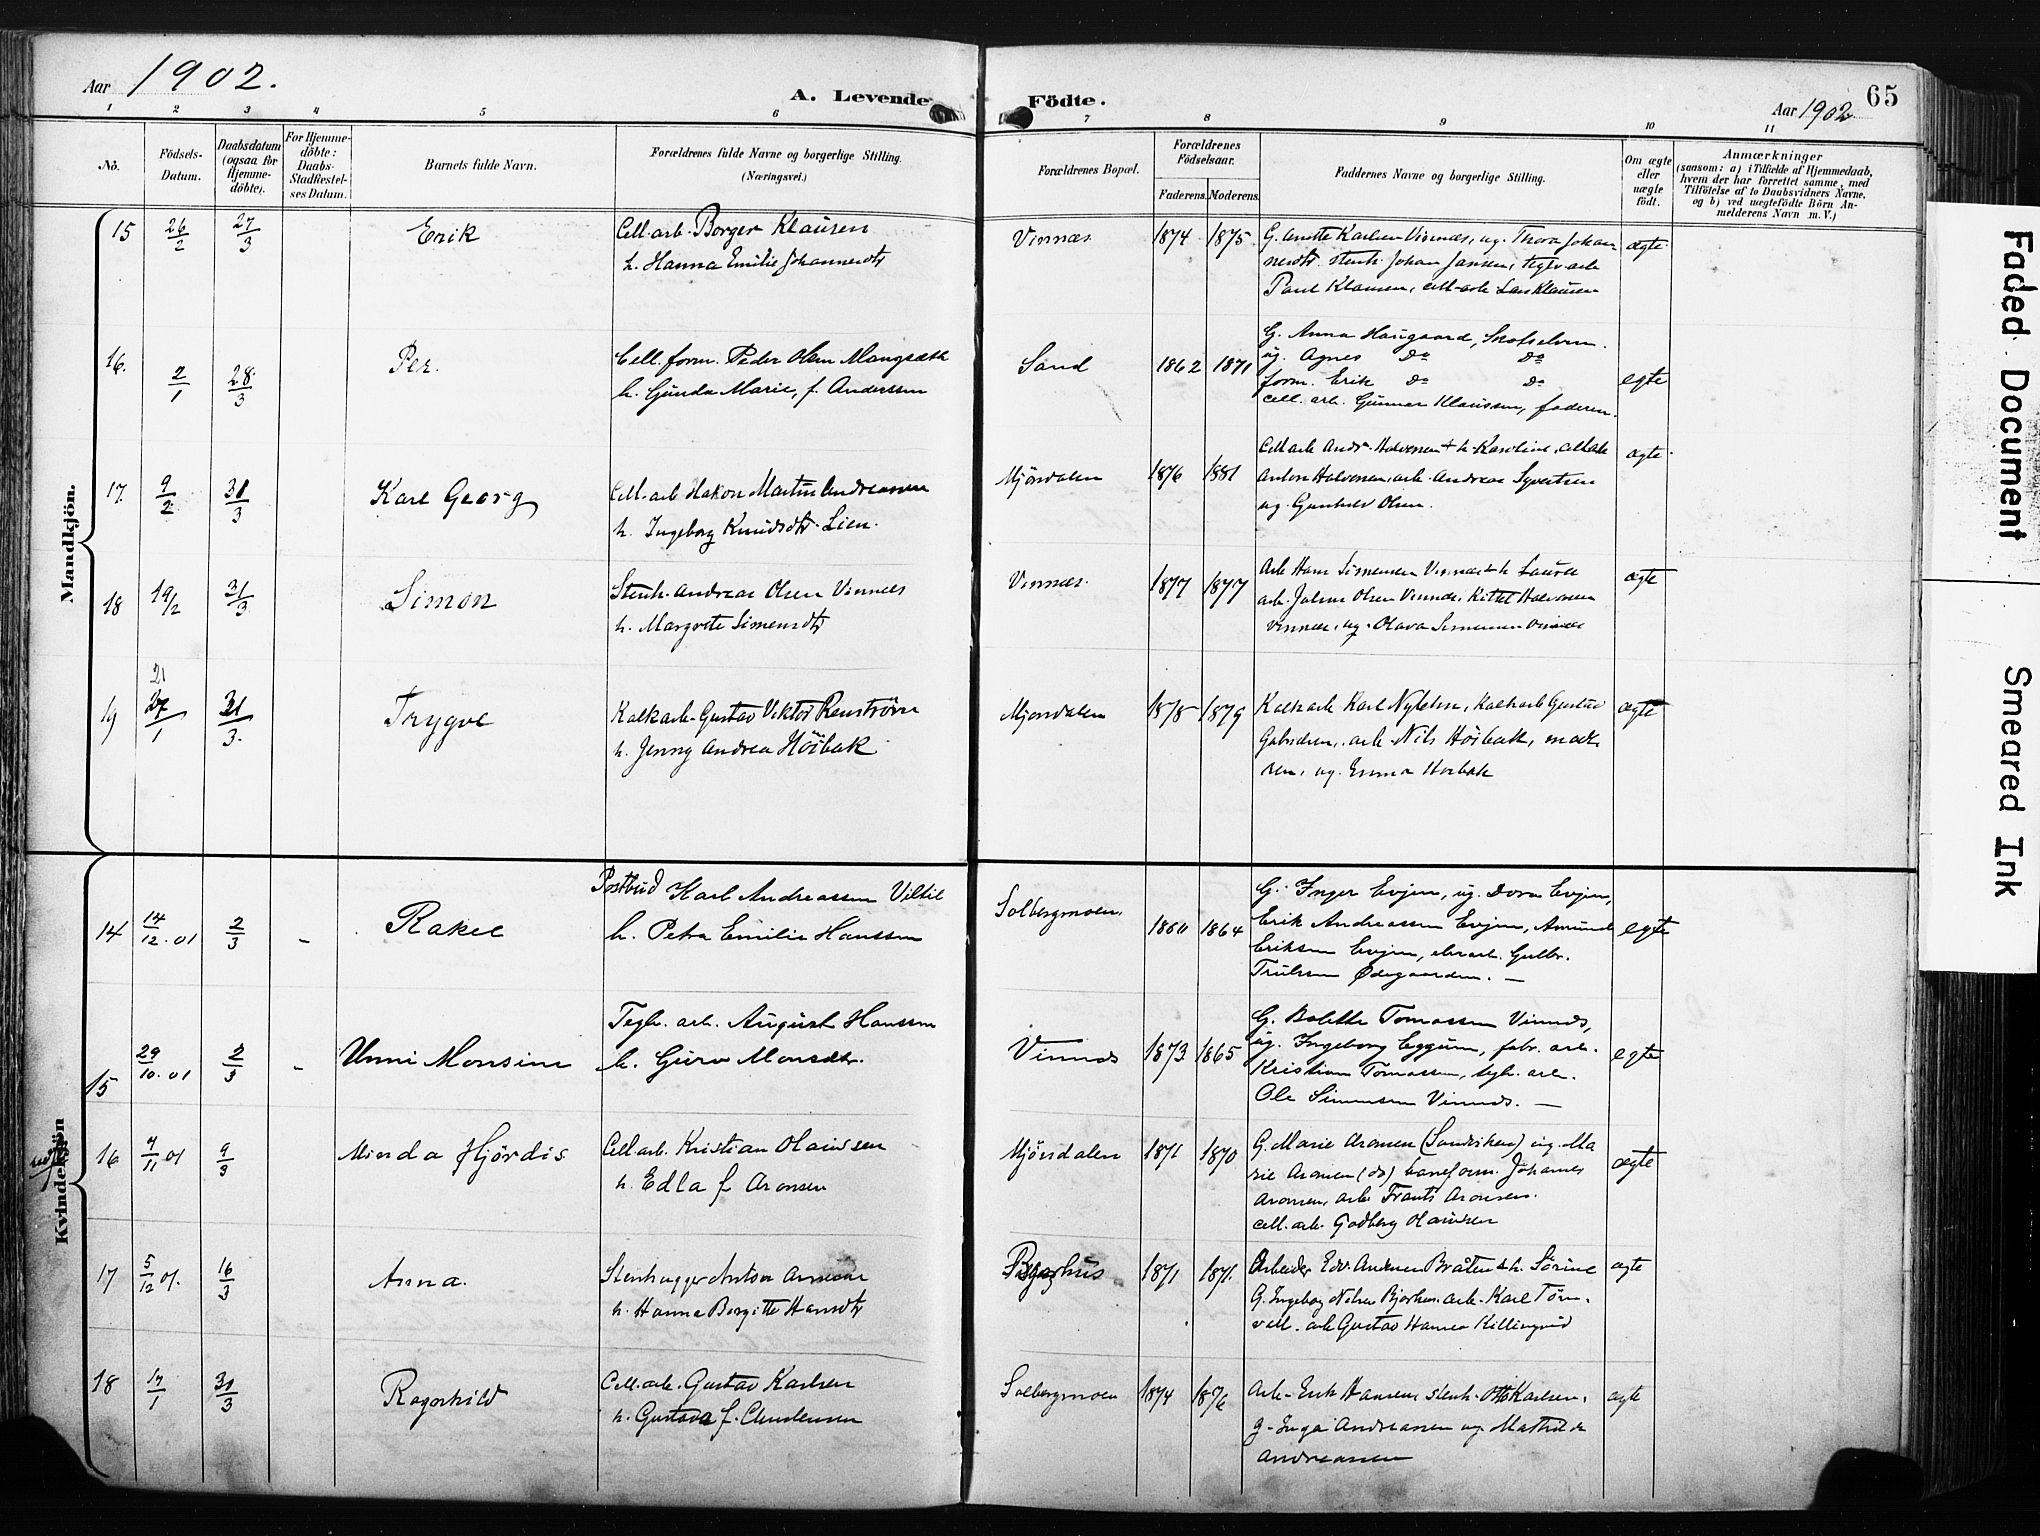 Aar 1902.
A. Levende Födte.
Aar 1902
65
1 2 3 4 5 6 7 8 9 10 11
No.
Födsels-Datum.
Daabsdatum (ogsaa for Hjemme-döbte).
For Hjemme-döbte: Daabs-Stadfæstel-ses Datum.
Barnets fulde Navn.
Forældrenes fulde Navne og borgerlige Stilling.
(Næringsvei.)
Forældrenes Bopæl.
Forældrenes Födselsaar.
Faderens. Moderens.
Faddernes Navne og borgerlige Stilling.
Om ægte eller uægte födt.
Anmærkninger
(saasom: a) i Tilfælde af Hjemmedaab,
hvem der har forrettet samme, med
Tilföielse af to Daabsvidners Navne.
og b) ved uægtefödte Börn An-
melderens Navn m. V.)
Mandkjön.
15 26/2 27/3 Erik Cell. arb. Borger Klausen Vinnæs 1874 1875 G. Anette Karlsen Vinnæs, ug. Thora Johan ægte
h. Hanna Emilie Johannesdtr nesdtr. stenh. Johan Jansen, teglv arb
Paul Klausen, cell-arb Lars Klausen
16. 2/1 28/3 Per. Cell. form. Peder Olsen Mangsæth Sand 1862 1871 G. Anna Haugaard, Skotselven
h. Gunda Marie, f. Anderssen ug. Agnes Do Do
form. Erik Do Do egte
cell. arb. Gunnar Klaussen, faderen.
17. 9/2 31/3 Karl Georg Cell. arb Hakon Martin Andreassen Mjøndalen 1876 1881 Cell arb Andr. Halvorsen + h. Karoline, cell arb ægte
h. Ingeborg Knudsdtr Lien. Anton Halvorsen, arb. Andreas Syvertsen
ug. Gunhild Olsen.
18 19/2 31/3 Simon Stenh. Andreas Olsen Vinnæs Vinnæs. 1877 1877 Arb Hans Simensen Vinnæs + h Laura ægte
h. Margrete Simensdtr arb. Johan Olsen Vinnæs, Kittel Halvorsen
Vinnæs, ug. Olava Simensen Vinnæs
19 21 27/1 31/3. Trygve Kalkarb. Gustav Viktor Renström Mjøndalen 1878 1879 Kalkarb Karl Nylehn, kalkarb Gustav ægte
h. Jenny Andrea Höibak , arb Nils Höibak, mod
ren, ug. Emma Hoibak
Kvindekjön
14 14/12.01 2/3 - Rakel Postbud Karl Andreassen Viltil Solbergmoen. 1860 1864 G. Inger Evjen, ug. Dora Evjen,
h. Petra Emilie Hanssen Erik Andreassen Evjen, Amund egte
Eriksen Evjen, elvearb. Gulbr.
Trulssen Ødegaarden. —
15 29/10.01 2/3 - Unni Monsine Teglv. arb. August Hanssen Vinnæs 1873 1865 G. Bolette Tomassen Vinnæs, egte
h. Guro Monsdtr. ug. Ingeborg Eggum, fabr. arb.
Kristian Tomassen, tegl. arb.
Ole Simensen Vinnæs. —
16 7/11 01 9/3 Minda Hjördis Cell arb. Kristian Olaussen Mjöndalen 1871 1870 G. Marie Aronsen (Sandviken) ug. Ma ægte
h. Edla f. Aronsen rie Aronsen (do) baneform. Johannes
Aronsen, arb Frants Aronsen.
cell. arb. Godberg Olaussen
17 5/12 01. 16/3 Anna. Stenhugger Anton Arnesen 1871 1871. Arbeider Edv. Andersen Bråten + h. Sörine ægte
h. Hanna Birgitte Hansdtr G. Ingeborg Nilsen Bjørhus. arb. Karl Törn.
cell. arb Gustav Hansen Killingrud
18 17/1 31/3 Ragnhild Cell. arb. Gustav Karlsen Solbergmoen 1874 1876 Arb. Erik Hansen, stenh. Otto Karlsen, ægte
h. Gustava f. Christensen g. Inga Andreassen ug Mathilde
Andreassen
Faded. Document
Smeared Ink